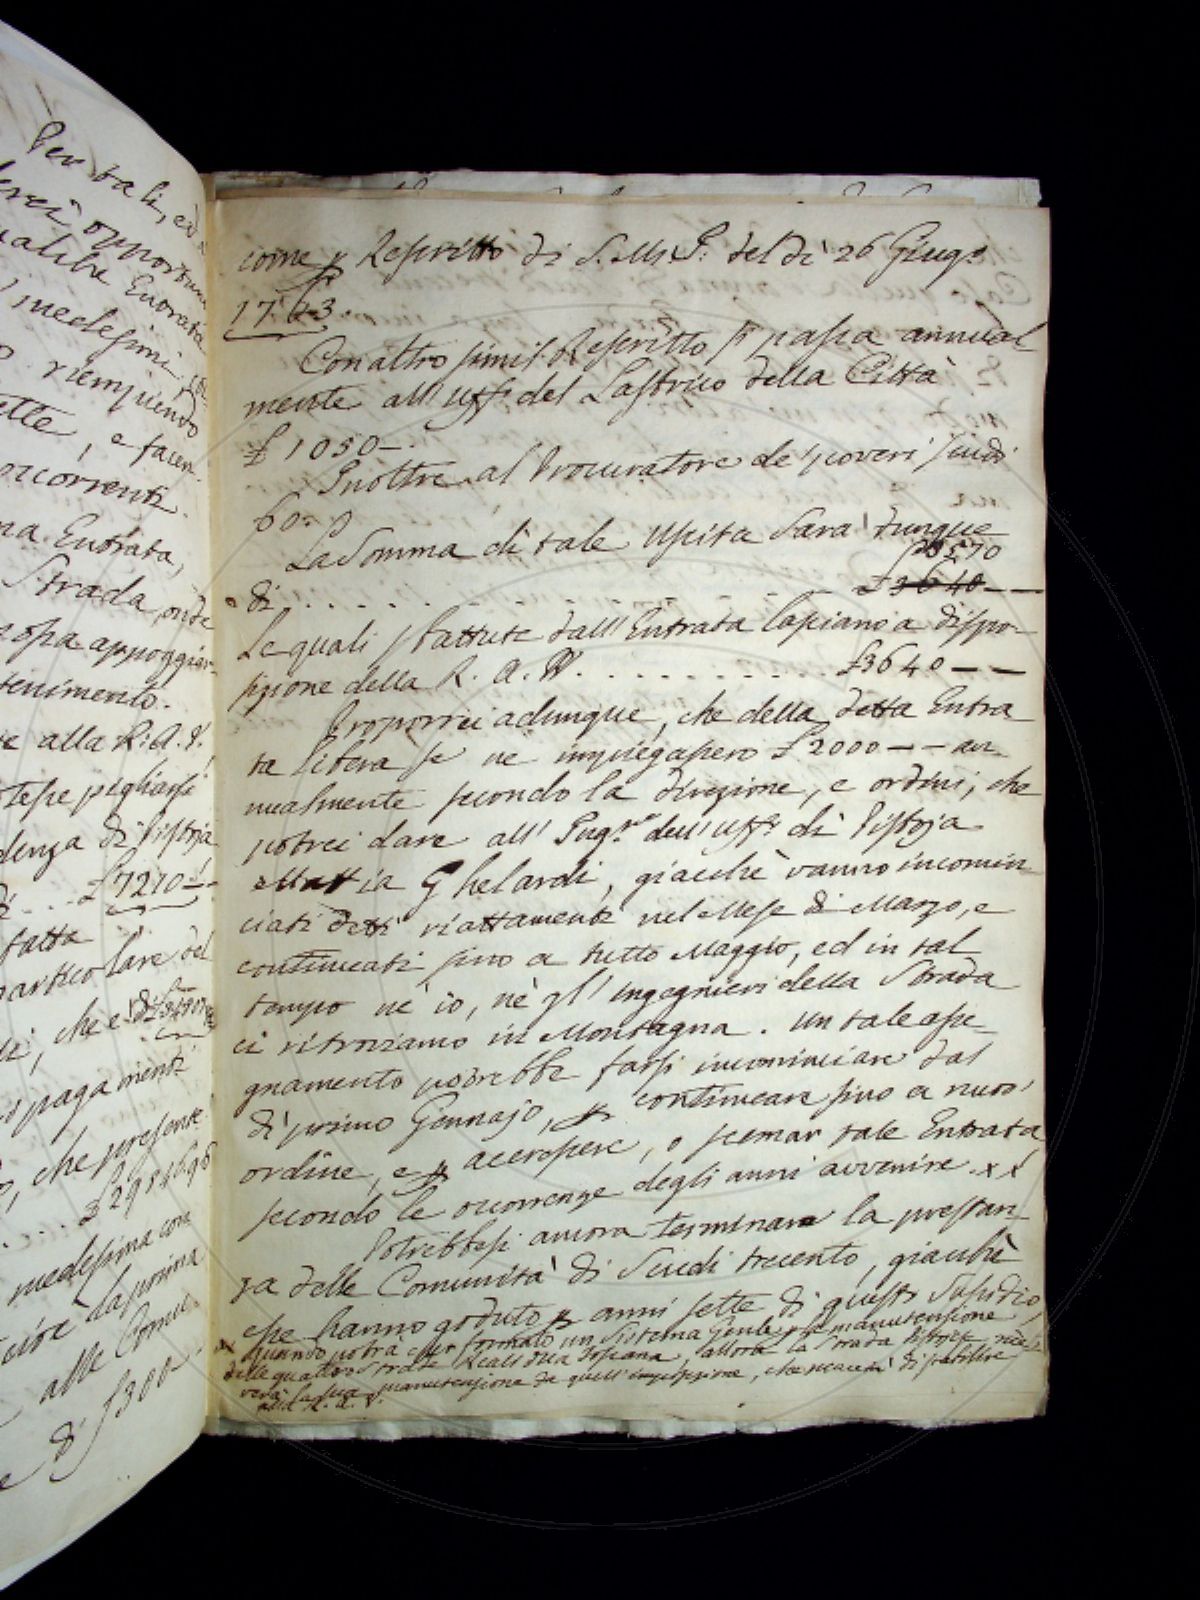 Per tali, ed
opportun
Entrata
medesimi
riempiendo
ette, e facen-
occorrenti.
na Entrata,
Strada, onde
appoggiar-
tenimento.
te alla R. A. V.
tesse pigliarsi
denza di Pistoja
£7210--
fatta
particolare del
di, che è di £3480
pagamenti
che presente
£2984.6.98
medesima con
la prima
alle Comu
di £300
come p Rescritto di S. M. I. del dì 26 Giug.o
1783.
Con altro simil Rescritto si passa annual-
mente all' Uff.o del Lastrico della Città
£ 1050-.
Inoltre al Procuratore de' poveri scudi
60.
La Somma di tale Uscita Sarà dunque
£3570
di . . . . . . . £3640--
Le quali sbattute dall' Entrata lasciano a dispo-
sizione della R. A. V. . . . . . . . . . . £3640--
Proporrei adunque, che della detta Entra
ta libera se ne impiegassero £2000-- an-
nualmente secondo la direzione, e ordini, che
potrei dare all' Ing.re dell' Uff.o di Pistoja
Mattia Ghelardi, giacchè vanno incomin
ciati detti riattamenti nel Mese di Marzo, e
continuati fino a tutto Maggio, ed in tal
tempo nè io, nè gl' Ingegnieri della Strada
ci ritroviamo in Montagna. Un tale asse-
gnamento potrebbe farsi incominciare dal
dì primo Gennajo, p continuare fino a nuov'
ordine, e p accrescere, o scemar tale Entrata
secondo le occorrenze degli anni avvenire xx
Potrebbesi ancora terminare la prestan-
za delle Comunità di Scudi trecento, giacchè
esse hanno goduto p anni sette di questo Susidio,
xx quando potrà esser formato un Sistema Gen.le p la manutensione
delle quattro Strade Reali della Toscana, allora la Strada Pistojese rice-
verà la sua manutenzione da quell' imposizione, che piacerà di stabilire
alla R. A. V.